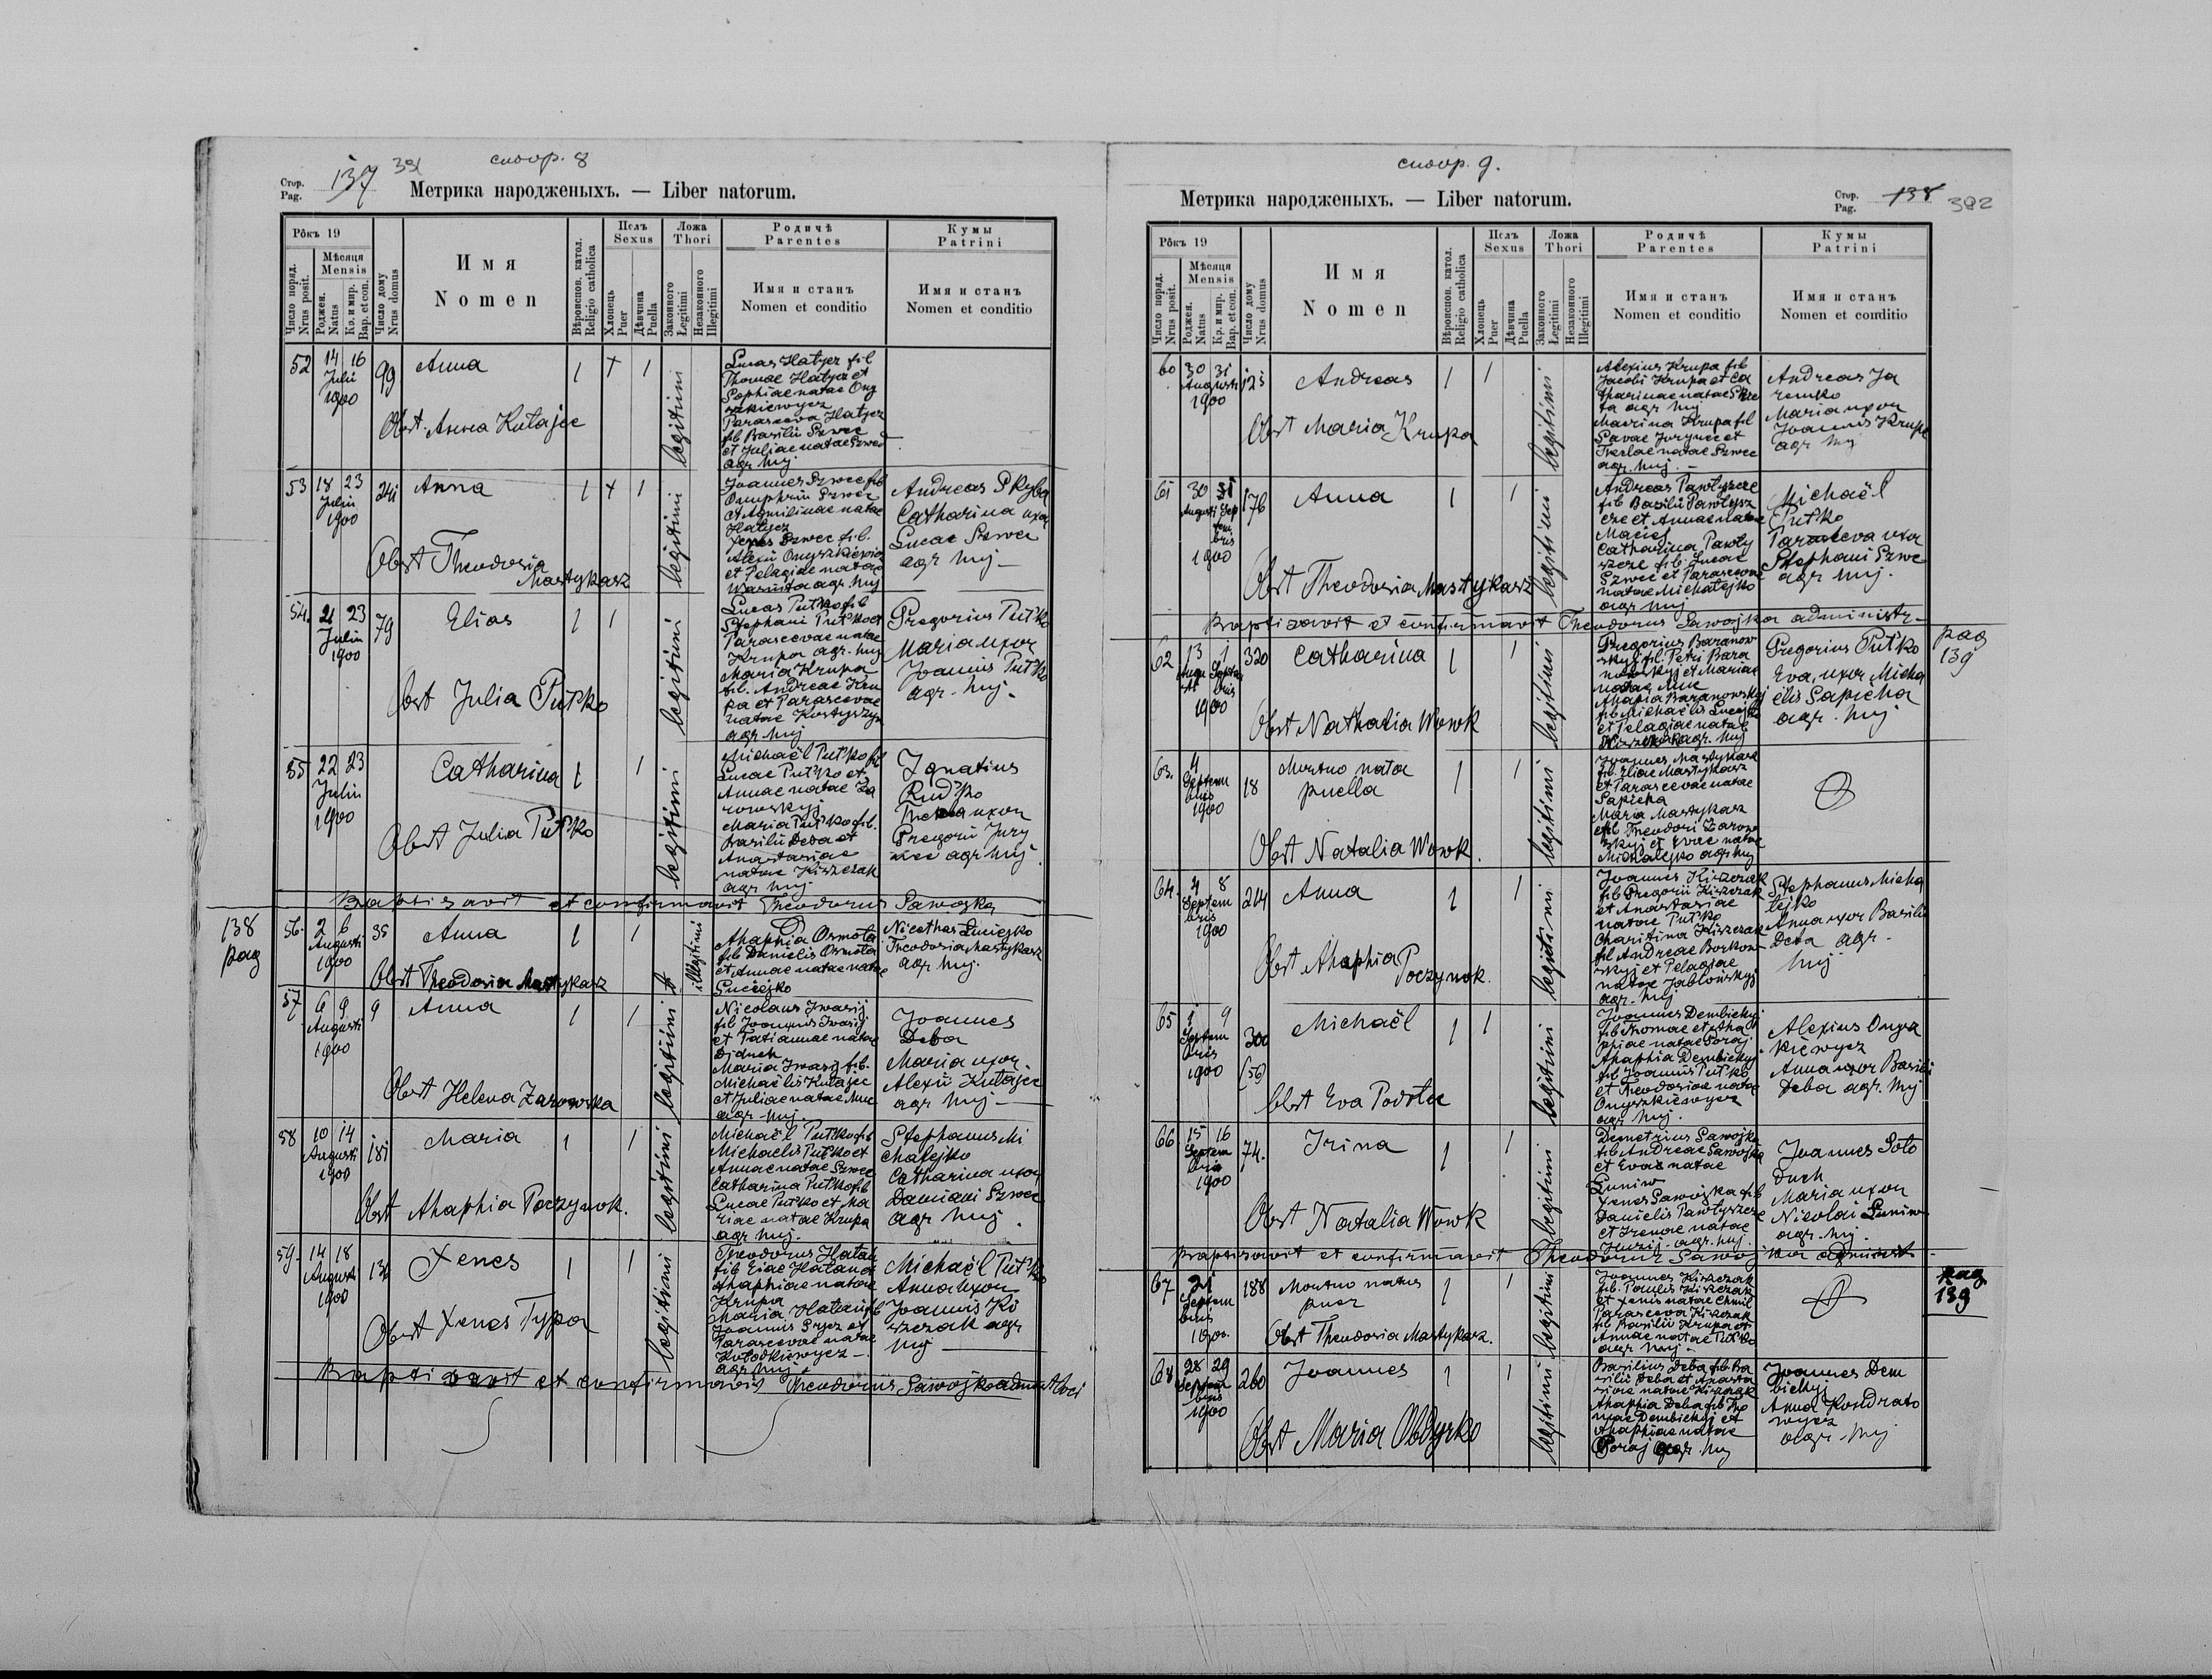 стор. 8
Стор. Pag. 137 391
Метрика народженыхъ. — Liber natorum.
Рôкъ 19
Число поряд. Nrus posit.
Мѣсяця Mensis
Роджен. Natus
Кр. и мир. Bap. et con.
Число дому Nrus domus
Имя
Nomen
Вѣроиспов. катол. Religio catholica
Полъ Sexus
Хлопець Puer
Дѣвчина Puella
Ложа Thori
Законного Legitimi
Незаконного Illegitimi
Родичѣ Parentes
Имя и станъ
Nomen et conditio
Кумы Patrini
Имя и станъ
Nomen et conditio
52 14 16 Julii 1900 99 Anna 1 + 1 legitimi
Obst. Anna Kułajec
Lucas Hałycz fil.
Thomae Hałycz et
Sophiae natae Ony
szkiewycz
Parasceva Hałycz
fil Basilii Szwec
et Juliae natae Szwec
agr. huj.
53 18 23 Julii 1900 241 Anna 1 + 1 legitimi
Obst Theodosia
Mastykasz
Joannes Szwec fil
Onuphrii Szwec
et Aquilinae natae
Hałycz
Xenes Szwec fil.
Alexii Onyszkiewicz
et Pelagiae natae
agr huj
Andreas Skyba
Catharina uxor
Lucae Szwec
agr huj —
54. 21 23 Julii 1900 79 Elias 1 1 legitimi
Obst Julia Put'ko
Lucas Put'ko fil
Stephani Put'ko et
Parascevae natae
Krupa agr. huj
Maria Krupa
fil. Andreae Kru
pa et Parascevae
natae Kostyszyn
agr huj
Gregorius Put'ko
Maria uxor
Joannis Put'ko
agr. huj.
55 22 23 Julii 1900 Catharina 1 1 legitimi
Obst Julia Put'ko
Michaël Put'ko fil
Lucae Put'ko et
Annae natae Za
rowskyj
Maria Put'ko fil.
Basilii Deba et
Anastasiae
natae Kiszczak
agr huj.
Ignatius
Rud'ko
Thekla uxor
Gregorii Jury
nec agr huj.
Baptisavit et confirmavit Theodorus Sawojka
138
pag
56. 2 6 Augusti 1900 35 Anna 1 1 illegitimi
Obst Theodosia Mastykasz
Ahaphia Osmoła
fil Danielis Osmoła
et Annae natae natae
Luciejko
Nicethas Luciejko
Theodosia Mastykasz
agr huj.
57 6 9 Augusti 1900 9 Anna 1 1 legitimi
Obst Helena Zarowska
Nicolaus Iwasij
fil Joannis Iwasij
et Tatiannae natae
Diduch
Maria Iwasij fil.
Michaëlis Kułajec
et Juliae natae Muc
agr. huj.
Joannes
Deba
Maria uxor
Alexii Kułajec
agr huj —
58 10 14 Augusti 1900 181 Maria 1 1 legitimi
Obst Ahaphia Poczynok.
Michaël Put'ko fil
Michaelis Put'ko et
Annae natae Szwec
Catharina Put'ko fil
Lucae Put'ko et Ma
riae natae Krupa
agr huj.
Stephanus Mi
chalejko
Catharina uxor
Damiani Szwec
agr huj.
59. 14 18 Augusti 1900 Xenes 1 1 legitimi
Obst Xenes Typa
Theodorus Hałan
fil Eliae Hałan et
Ahaphiae natae
Krupa
Maria Hałan fil
Joannis Hryc et
Parascevae natae
Kołodkiewycz —
agr huj.
Michaël Put'ko
Anna uxor
Joannis Ki
szczak agr
huj —
Baptisavit et confirmavit Theodorus Sawojka adm. loci
стор. 9.
Метрика народженыхъ. — Liber natorum.
Стор. Pag. 138 392
Рôкъ 19
Число поряд. Nrus posit.
Мѣсяця Mensis
Роджен. Natus
Кр. и мир. Bap. et con.
Число дому Nrus domus
Имя
Nomen
Вѣроиспов. катол. Religio catholica
Полъ Sexus
Хлопець Puer
Дѣвчина Puella
Ложа Thori
Законного Legitimi
Незаконного Illegitimi
Родичѣ Parentes
Имя и станъ
Nomen et conditio
Кумы Patrini
Имя и станъ
Nomen et conditio
60 30 31 Augusti 1900 125 Andreas 1 1 legitimi
Obst Maria Krupa
Alexius Krupa fil
Jacobi Krupa et Ca
tharinae natae
agr huj
Marina Krupa fil
Savae Jurynec et
Theclae natae Szwec
agr. huj. —
Andreas Ja
remko
Maria uxor
Joannis Krupa
agr huj
61 30 Augusti 31 Septembris 1900 176 Anna 1 1 legitimi
Obst Theodosia Mastykasz
Andreas Pawłyszcze
fil Basilii Pawłysz
cze et Annae natae
Maciej
Catharina Pawły
szcze fil Lucae
Szwec et Parascevae
natae Michalejko
agr huj
Michaël
Put'ko
Parasceva uxor
Stephani Szwec
agr huj.
Baptisavit et confirmavit Theodorus Sawojka administr.
pag
139
62 13 Augusti 1 Septembris 1900 320 Catharina 1 1 legitimi
Obst Nathalia Wowk
Gregorius Baranow
skyj fil. Petri Bara
nowskyj et Mariae
natae Muc
Ahapia Baranowskyj
fil Michaëlis
et Pelagiae natae
agr. huj
Gregorius Put'ko
Eva uxor Micha
ëlis Sapicha
agr. huj
63. 4 Septembris 1900 18 Mortuo nata
puella 1 1 legitimi
Obst Natalia Wowk.
Joannes Mastykasz
fil Eliae Mastykasz
et Parascevae natae
Sapicha
Maria Mastykasz
fil Theodori Zarow
skyj et Evae natae
Michalejko agr huj
64. 4 8 Septembris 1900 204 Anna 1 1 legitimi
Obst Ahaphia Poczynok.
Joannes Kiszczak
fil Gregorii Kiszczak
et Anastasiae
natae Put'ko
Charitina Kiszczak
fil Andreae Borkow
skyj et Pelagiae
natae Jabłowskyj
agr. huj
Stephanus Micha
lejko
Anna uxor Basilii
Deba agr.
huj
65 9 Septembris 1900 300 (56) Michaël 1 1 legitimi
Obst Eva Podolec
Joannes Dembickyj
fil Thomae et Aha
phiae natae Poraj
Ahaphia Dembickyj
fil Joannis Put'ko
et Theodosiae natae
Onyszkiewycz
agr huj.
Alexius Onysz
kiewycz
Anna uxor Basilii
Deba agr. huj
66 15 16 Septembris 1900 74. Irina 1 1 legitimi
Obst Natalia Wowk
Demetrius Sawojka
fil Andreae Sawojka
et Evae natae
Luniw
Xenes Sawojka fil
Danielis Pawłyszcze
et Irenae natae
Jurij. agr. huj.
Joannes Soło
duch
Maria uxor
Nicolai Luniw
agr. huj.
Baptisavit et confirmavit Theodorus Sawojka administ.
pag
139
67 21 Septembris 1900. 188 Mortuo natus
puer 1 1 legitimi
Obst Theodosia Mastykasz.
Joannes Kiszczak
fil. Pauli Kiszczak
et Xenis natae Chmil
Parasceva Kiszczak
fil Basilii Krupa et
Annae natae Put'ko
agr huj —
68 28 29 Septembris 1900 260 Joannes 1 1 legitimi
Obst Maria Obdyrko
Basilius Deba fil Ba
silii Deba et Anasta
siae natae Kiszczak
Ahaphia Deba fil Tho
mae Dembickyj et
Ahaphiae natae
Poraj agr. huj
Joannes Dem
bickyj
Anna Kondrato
wycz
agr. huj